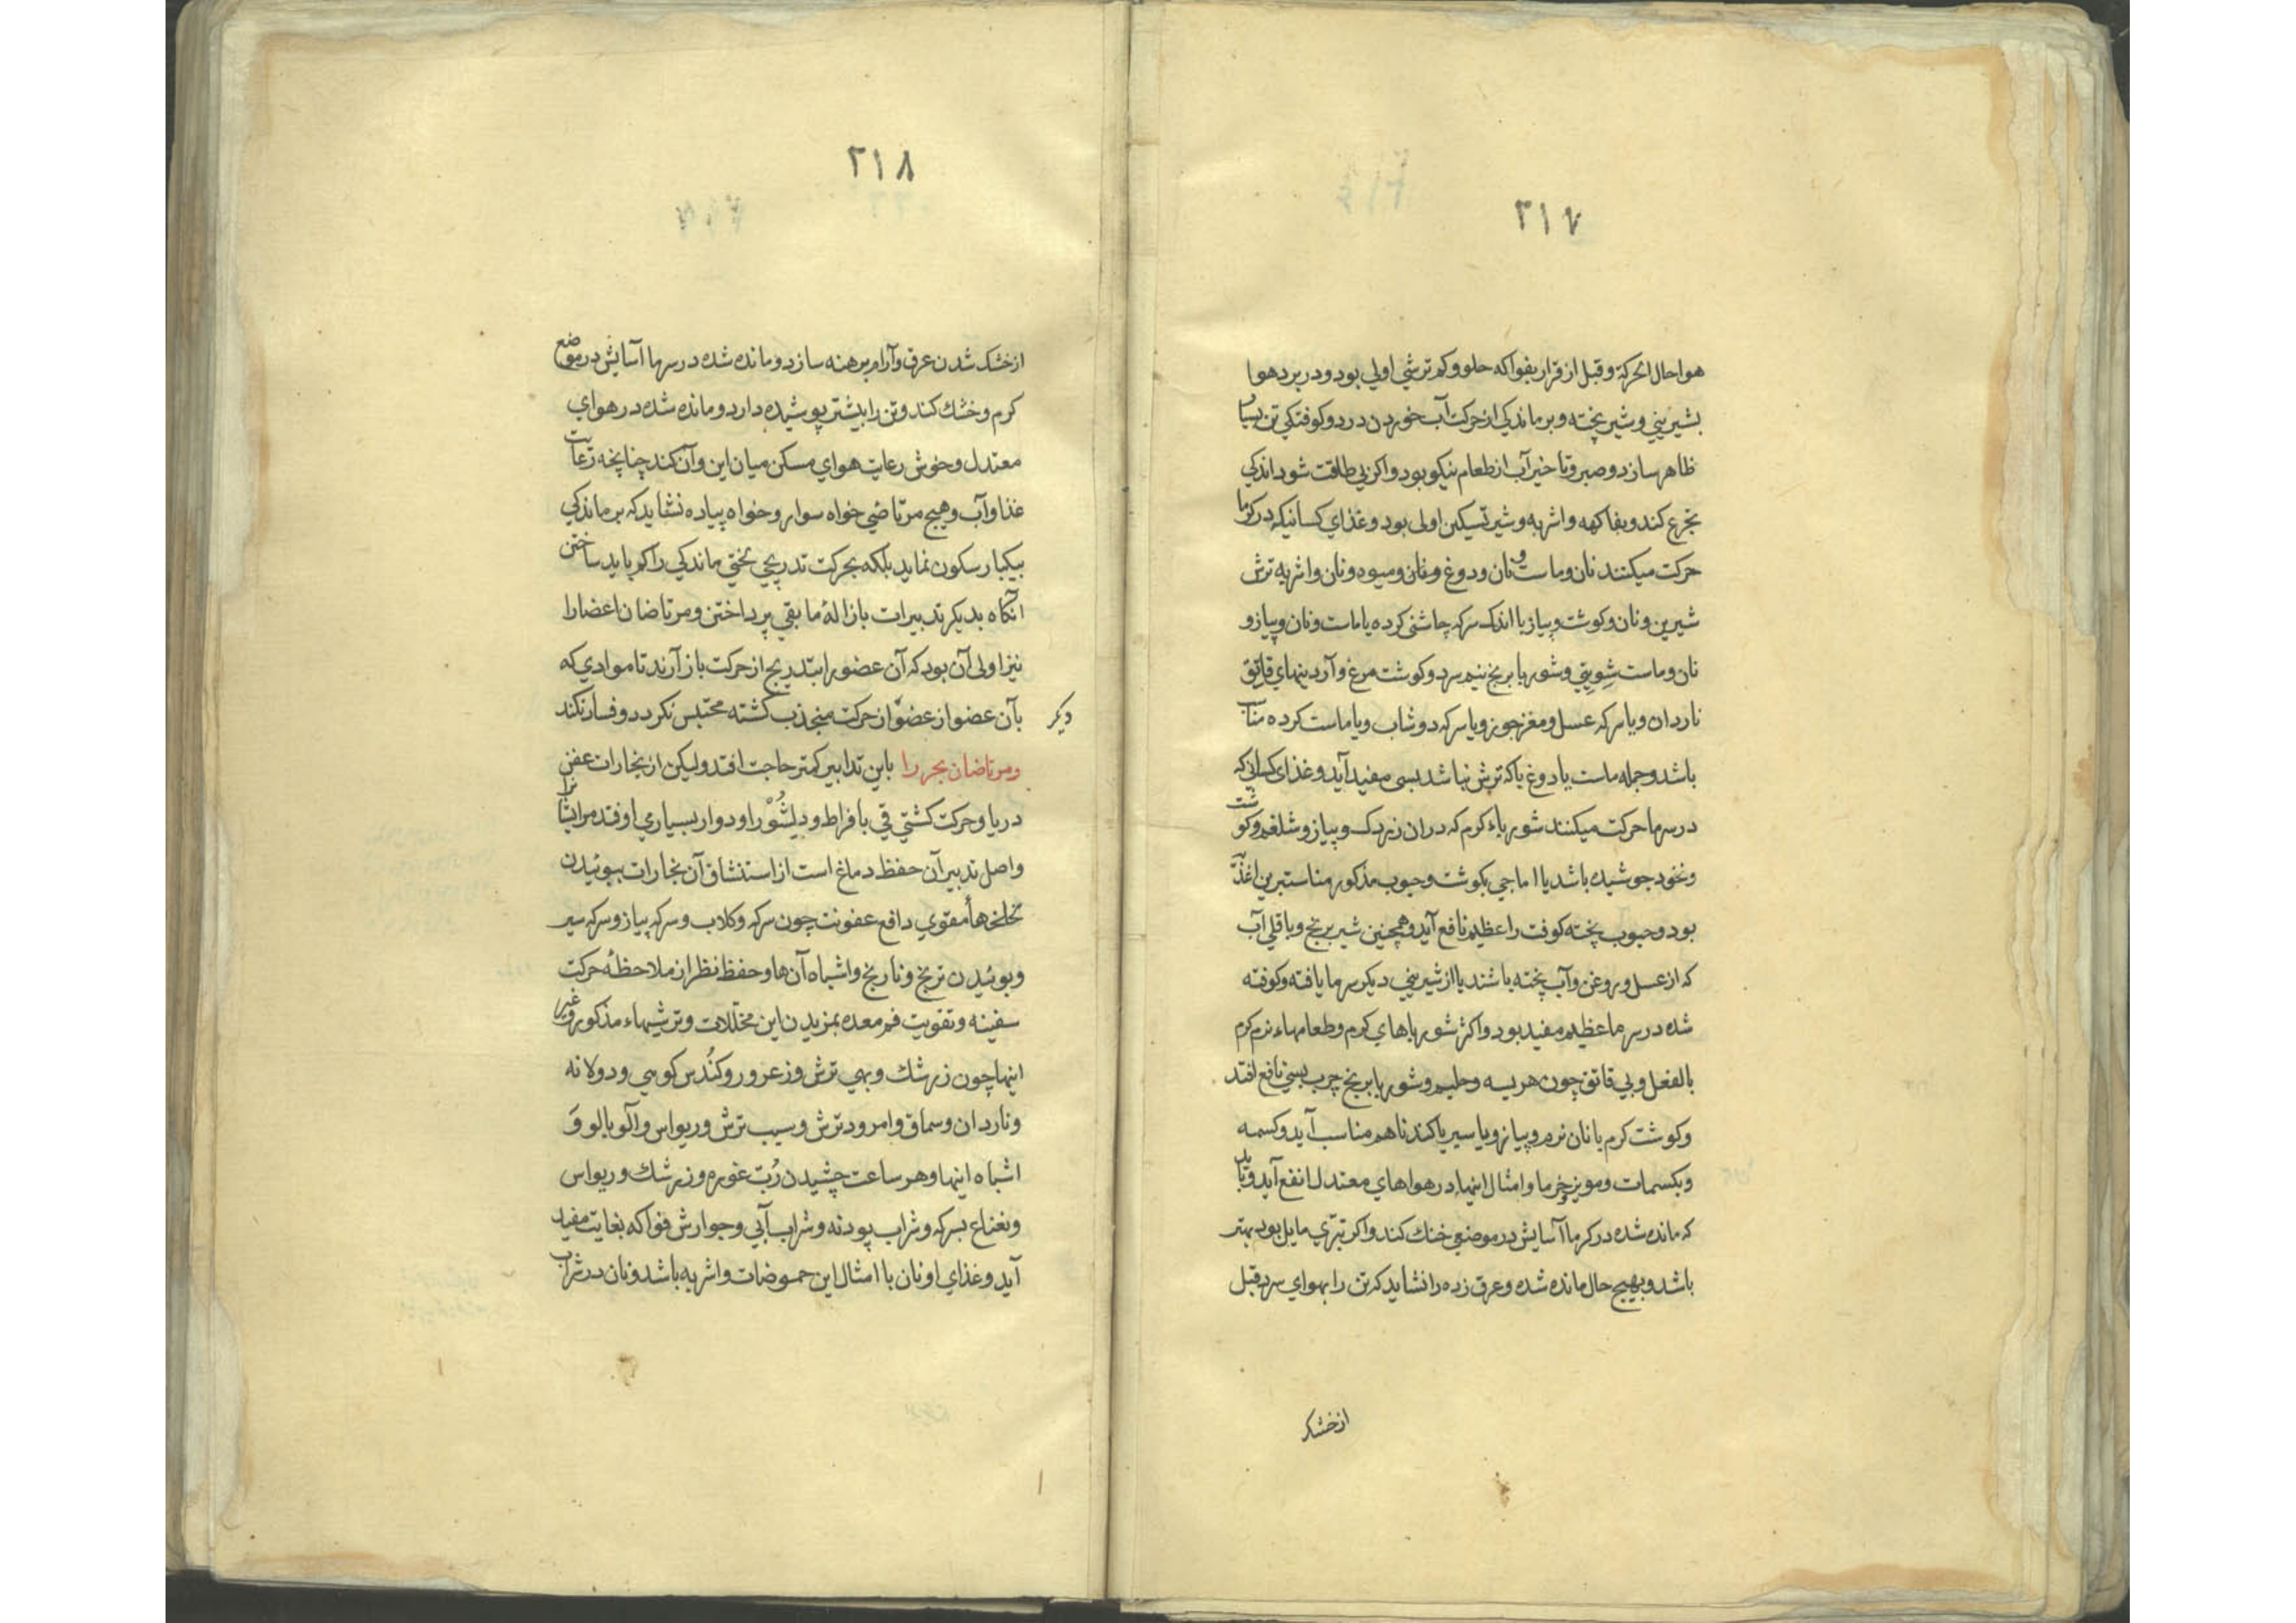 ۲۱۷
هوا حال الحرکة و قبل از قرار بفواکه حلو و کم ترشی اولی بود و در برد هوا
بشیرینی و شیر پخته و بر ماندکی از حرکت آب خوردن درد و کوفتکی تن بسیار
ظاهر سازد و صبر و تاخیر آب از طعام نیکو بود و اکر بی طاقت شود اندکی
تجرع کند و بفاکهه و اشربه و شیر تسکین اولی بود و غذای کسانیکه در کرما
حرکت میکنند نان و ماست و نان و دوغ و نان و میوه و نان و اشربه ترش
شیرین و نان و کوشت و پیاز با اندک سرکه چاشنی کرده یا ماست و نان و پیاز و
نان و ماست شویتی و شوربا برنج نیم سرد و کوشت مرغ و آردینهای قاتق
ناردان و یا سرکه عسل و مغز جوز و یا سرکه دوشاب و یا ماست کرده مناسب
باشد و جمله ماست یا دوغ یا که ترش نباشد بسی مفید آید و غذای کسانی که
در سرما حرکت میکنند شورباء کرم که در ان زردک و پیاز و شلغم و کوشت
و نخود جوشیده باشد یا اماجی بکوشت و حبوب مذکور مناسبترین اغذیه
بود و حبوب پخته کوفت را عظیم نافع آید و همچنین شیر برنج و باقلی آب
که از عسل و روغن و آب پخته باشند یا از شیرینی دیکر سرما یافته و کوفته
شده در سرما عظیم مفید بود و اکثر شورباهای کرم و طعامهاء نرم کرم
بالفعل و بی قاتق چون هریسه و حلیم و شوربا برنج چرب بسی نافع افتد
و کوشت کرم با نان نرم و پیاز و یا سیر یا کندنا هم مناسب آید و کسمه
و بکسمات و مویز و خرما و امثال اینها در هواهای معتدل انفع آید و باید
که مانده شده در کرما آسایش در موضعی خنک کند و اکر تبرّی مایل بود بهتر
باشد و بهیچ حال مانده شده و عرق زده را نشاید که تن را بهوای سرد قبل
از خشک
۲۱۸
از خشک شدن عرق و آرام برهنه سازد و مانده شده در سرما آسایش در موضع
کرم و خشک کند و تن را بیشتر پوشیده دارد و مانده شده در هوای
معتدل و خوش رعایت هوای مسکن میان این و آن کند چنانچه رعایت
غذا و آب و هیچ مرتاضی خواه سوار و خواه پیاده نشاید که بر ماندکی
بیکبار سکون نماید بلکه بحرکت تدریجی نختی ماندکی را کم باید ساختن
آنکاه بدیکر تدبیرات بازالهٔ ما بقی پرداختن و مرتاضان اعضا را
نیز اولی آن بود که آن عضو را بتدریج از حرکت باز آرند تا موادی که
بآن عضو از عضوٌ از حرکت منجذب کشته محتبس نکردد و فساد نکند
دیکر
و مرتاضان بحر را باین تدابیر کمتر حاجت افتد ولیکن از بخارات عفن
دریا و حرکت کشتی قی بافراط و دلشُوْرا و دوار بسیاری اوفتد مر ایشانرا
و اصل تدبیر آن حفظ دماغ است از استنشاق آن بخارات ببوئیدن
لخلخهاأ مقوی دافع عفونت چون سرکه و کلاب و سرکه پیاز و سرکه سیر
و بوئیدن ترنج و نارنج و اشباه آن ها و حفظ نظر از ملاحظهٔ حرکت
سفینه و تقویت فم معده بمزیدن این مخللات و ترشیهاء مذکور و غیر
اینها چون زرشک و بهی ترش و زعرور و کُندُس کوهی و دولانه
و ناردان و سماق و امرود ترش و سیب ترش و ریواس و آلوبالو وَ
اشباه اینها و هر ساعت چشیدن رُبّ غوره و زرشک و ریواس
و نعناع بسرکه و شراب پودنه و شراب آبی و جوارش فواکه بغایت مفید
آید و غذای او نان با امثال این حموضات و اشربه باشد و نان در شراب